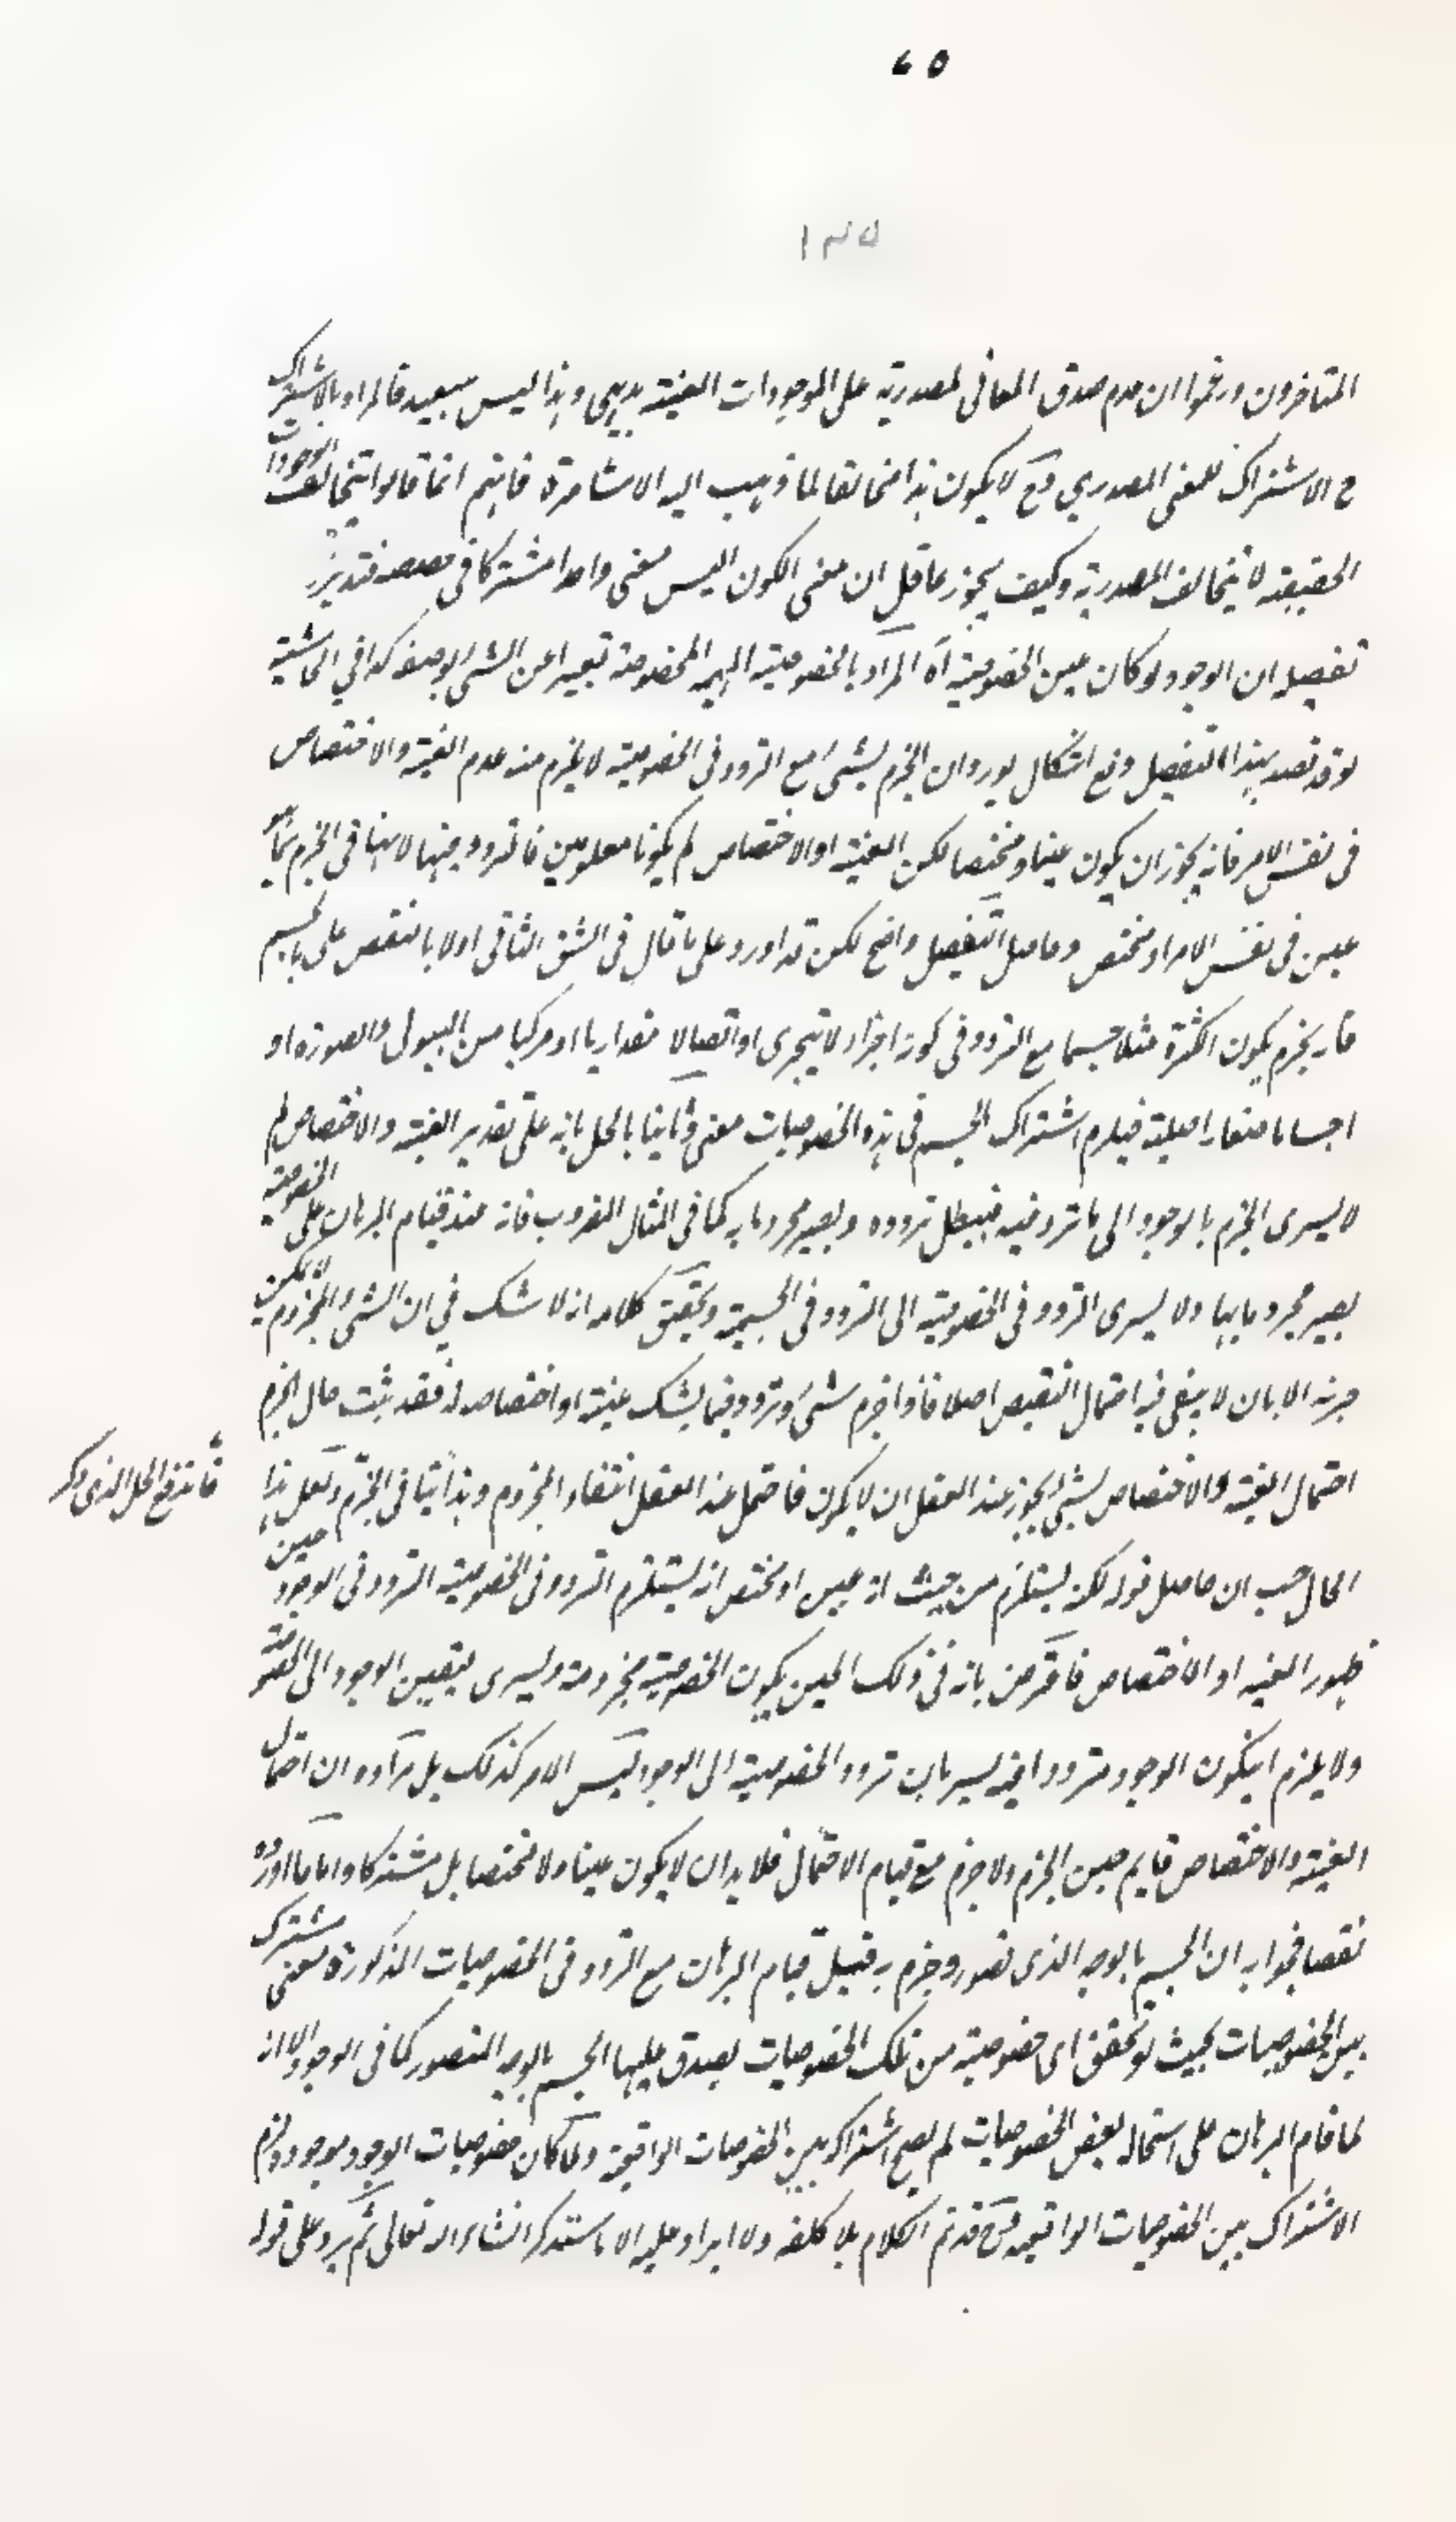 ٦٥
المتاخرون وزعموا ان عدم صدق المعاني المصدرية على الموجودات العينية بديهي وهذا ليس ببعيد فالمراد بالاشتراك
ح الاشتراك للمعنى المصدري وح لا يكون هذا مخالفا لما ذهب اليه الاشاعرة فانهم انما قالوا بتخالف الوجودات
الحقيقية لا بتخالف المصدرية وكيف يجوز عاقل ان معنى الكون ليس معنى واحدا مشتركا في حصصه فتدبر
تفصيله ان الوجود لو كان عين الخصوصية آه المراد بالخصوصية المهية المخصوصة تعبيرا عن الشيء بوصفه كذا في الحاشية
وقد قصد بهذا التفصيل دفع اشكال يورد ان الجزم بشيء مع التردد في الخصوصية لا يلزم منه عدم العينية والاختصاص
في نفس الامر فانه يجوز ان يكون عينا ومختصا لكن العينية او الاختصاص لم يكونا معلومين فالتردد فيها لا ينافي الجزم بما هو
عين في نفس الامر او مختص وحاصل التفصيل واضح لكن قد اورد على ما قال في الشق الثاني اولا بالنقض على بالجسم
فانه يجزم بكون الكثرة مثلا جسما مع التردد في كونه اجزاء لا تتجزى او اتصالا مقداريا او مركبا من الهيولى والصورة او
اجساما صغارا صلبة فيلزم اشتراك الجسم في هذه الخصوصيات معنى وثانيا بالحل بانه على تقدير العينية والاختصاص لم
لا يسرى الجزم بالوجود الى ما تردد فيه فيبطل تردده ويصير مجزوما به كما في المثال المضروب فانه عند قيام البرهان على الخصوصية
يصير مجزوما بها ولا يسرى التردد في الخصوصية الى التردد في الجسمية وتحقيق كلامه انه لا شك في ان الشيء المجزوم لا يمكن
جزمه الا بان لا يبقى فيه احتمال النقيض اصلا فاذا جزم شيء وتردد فيما يشك عينيته او اختصاصه له فقد ثبت حال الجزم
احتمال العينية والاختصاص لشيء يجوز عند العقل ان لا يكون فاحتمل عند العقل انتفاء المجزوم وهذا ينافي الجزم ولعل هذا
فاندفع الحل الذي ذكر
الحال حسب ان حاصل قوله لكنه يستلزم من حيث انه عين او مختص انه يستلزم التردد في الخصوصية التردد في الوجود حين
ظهور العينية او الاختصاص فاعترض بانه في ذلك الحين يكون الخصوصية مجزومة ويسرى تيقين الوجود الى الخصوصية
ولا يلزم ان يكون الوجود مترددا فيه بسريان تردد الخصوصية الى الوجود ليس الامر كذلك بل مراده ان احتمال
العينية والاختصاص قايم حين الجزم ولا جزم مع قيام الاحتمال فلا بد ان لا يكون عينا ولا مختصا بل مشتركا واما ما اورده
نقضا فجوابه ان الجسم بالوجه الذي تصور وجزم به قبيل قيام البرهان مع التردد في الخصوصيات المذكورة معنى مشترك
بين الخصوصيات بحيث لو تحقق اي خصوصية من تلك الخصوصيات يصدق عليها الجسم بالوجه المتصور كما في الوجود الا انه
لما قام البرهان على استحالة بعض الخصوصيات لم يصح اشتراكه بين الخصوصيات الواقعية ولما كان خصوصيات الوجود موجودة لزم
الاشتراك بين الخصوصيات الواقعية فح قد تم الكلام بلا كلفه ولا ايراد عليه الا ما ستذكر انشاء الله تعالى ثم يرد على قوله